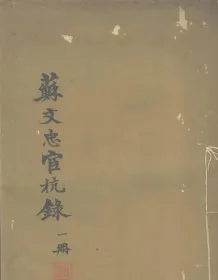 蘇文忠官杭錄
一冊